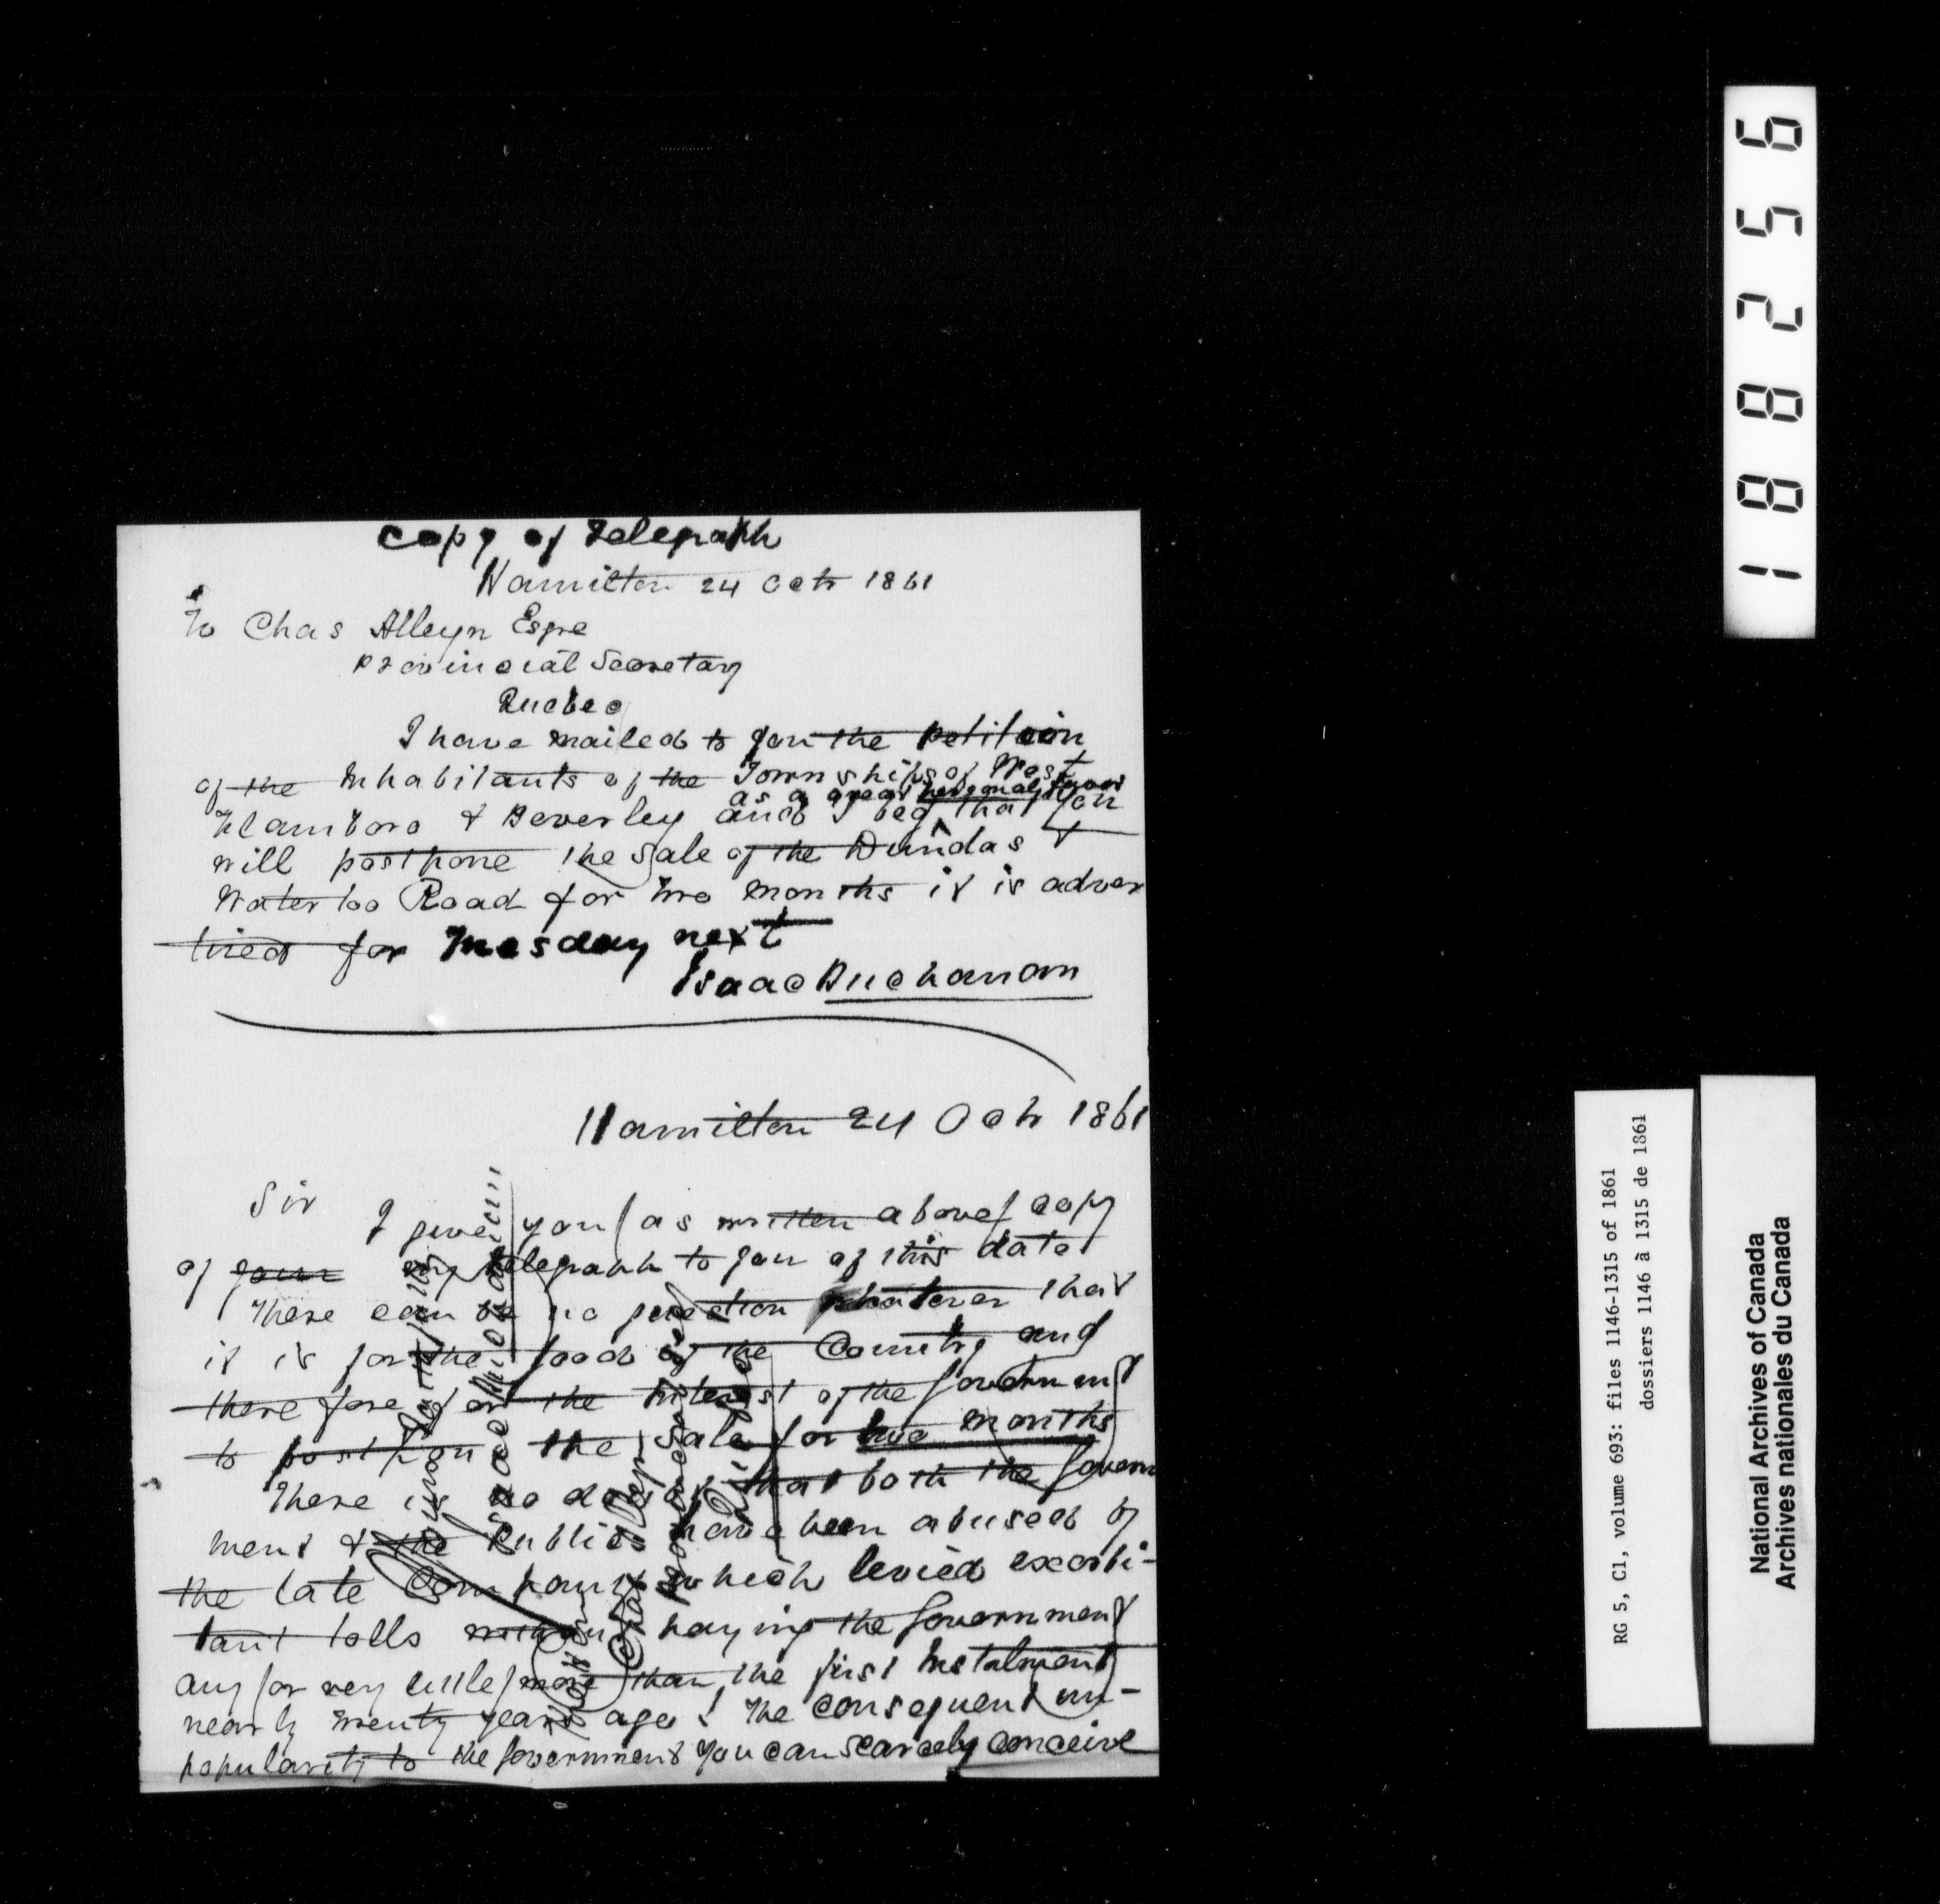 Copy of Telegraph
Hamilton 24 Octr 1861
To Chas Alleyn Esqre
Provincial Secretary
Quebec
I have mailed to you the petition
of the Inhabitants of the Townships of West
as a great personal favor
Flamboro & Beverley and I beg ^ that you
will postpone the Sale of the Dundas &
Waterloo Road for two months it is adver
tised for Tuesday next
Isaac Buchanan
Hamilton 24 Octr 1861
Sir
I give you (as written above) copy
of your my telegraph to you of this date
There can be no question whatever that
it is for the good of the Country and
therefore for the Interest of the Government
to postpone the Sale for two months
There is no doubt that both the Govern
ment & the Public have been abused by
the late Company which levied exorbi-
tant tolls without paying the Government
any (or very little) more than the first Instalment
nearly twenty years ago! The consequent un-
popularity to the Government you can scarcely conceive
Yours Respectfully
Isaac Buchanan
Hon
Chas Alleyn
Provincial Secy
Quebec
188256
RG 5, C1, volume 693: files 1146-1315 of 1861
dossiers 1146 à 1315 de 1861
National Archives of Canada
Archives nationales du Canada